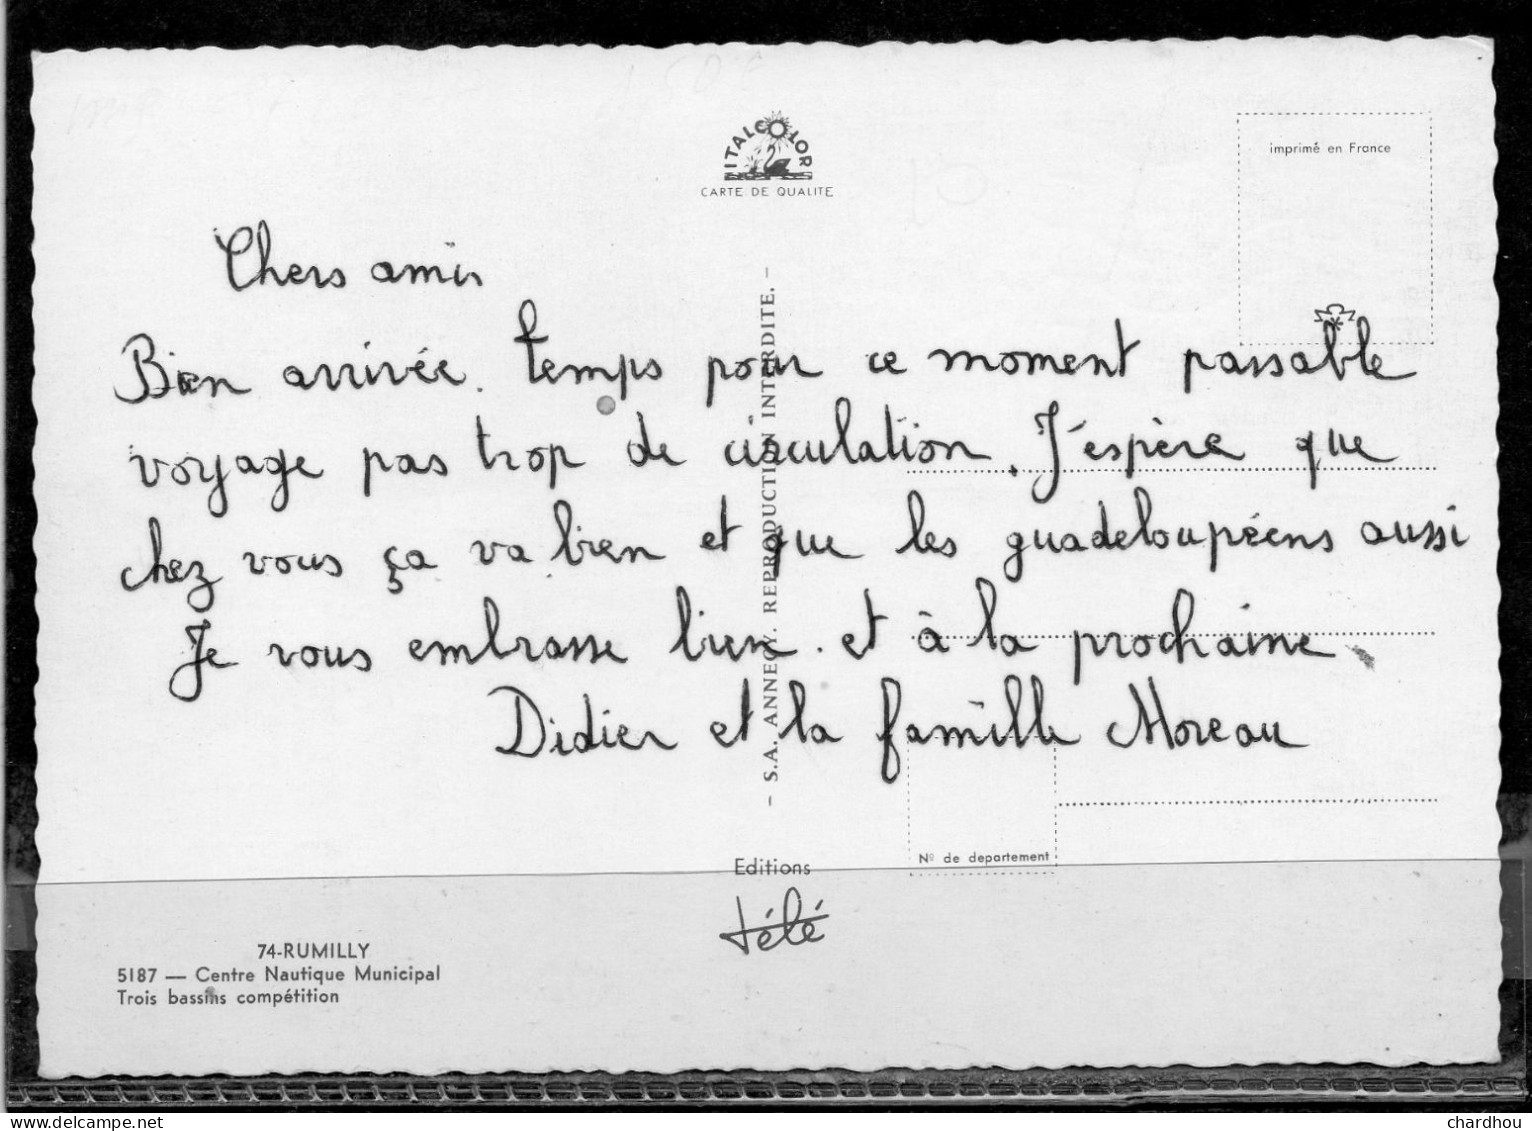 ITALCOLOR
CARTE DE QUALITE
imprimé en France
Chers amis
Bien arrivée. temps pour ce moment passable
voyage pas trop de circulation. J'espère que
chez vous ça va bien et que les guadeloupéens aussi
Je vous embrasse bien. et à la prochaine
Didier et la famille Moreau
– S.A. ANNECY. REPRODUCTION INTERDITE. –
Nº de departement
Editions
télé
74-RUMILLY
5187 — Centre Nautique Municipal
Trois bassins compétition
delcampe.net
chardhou